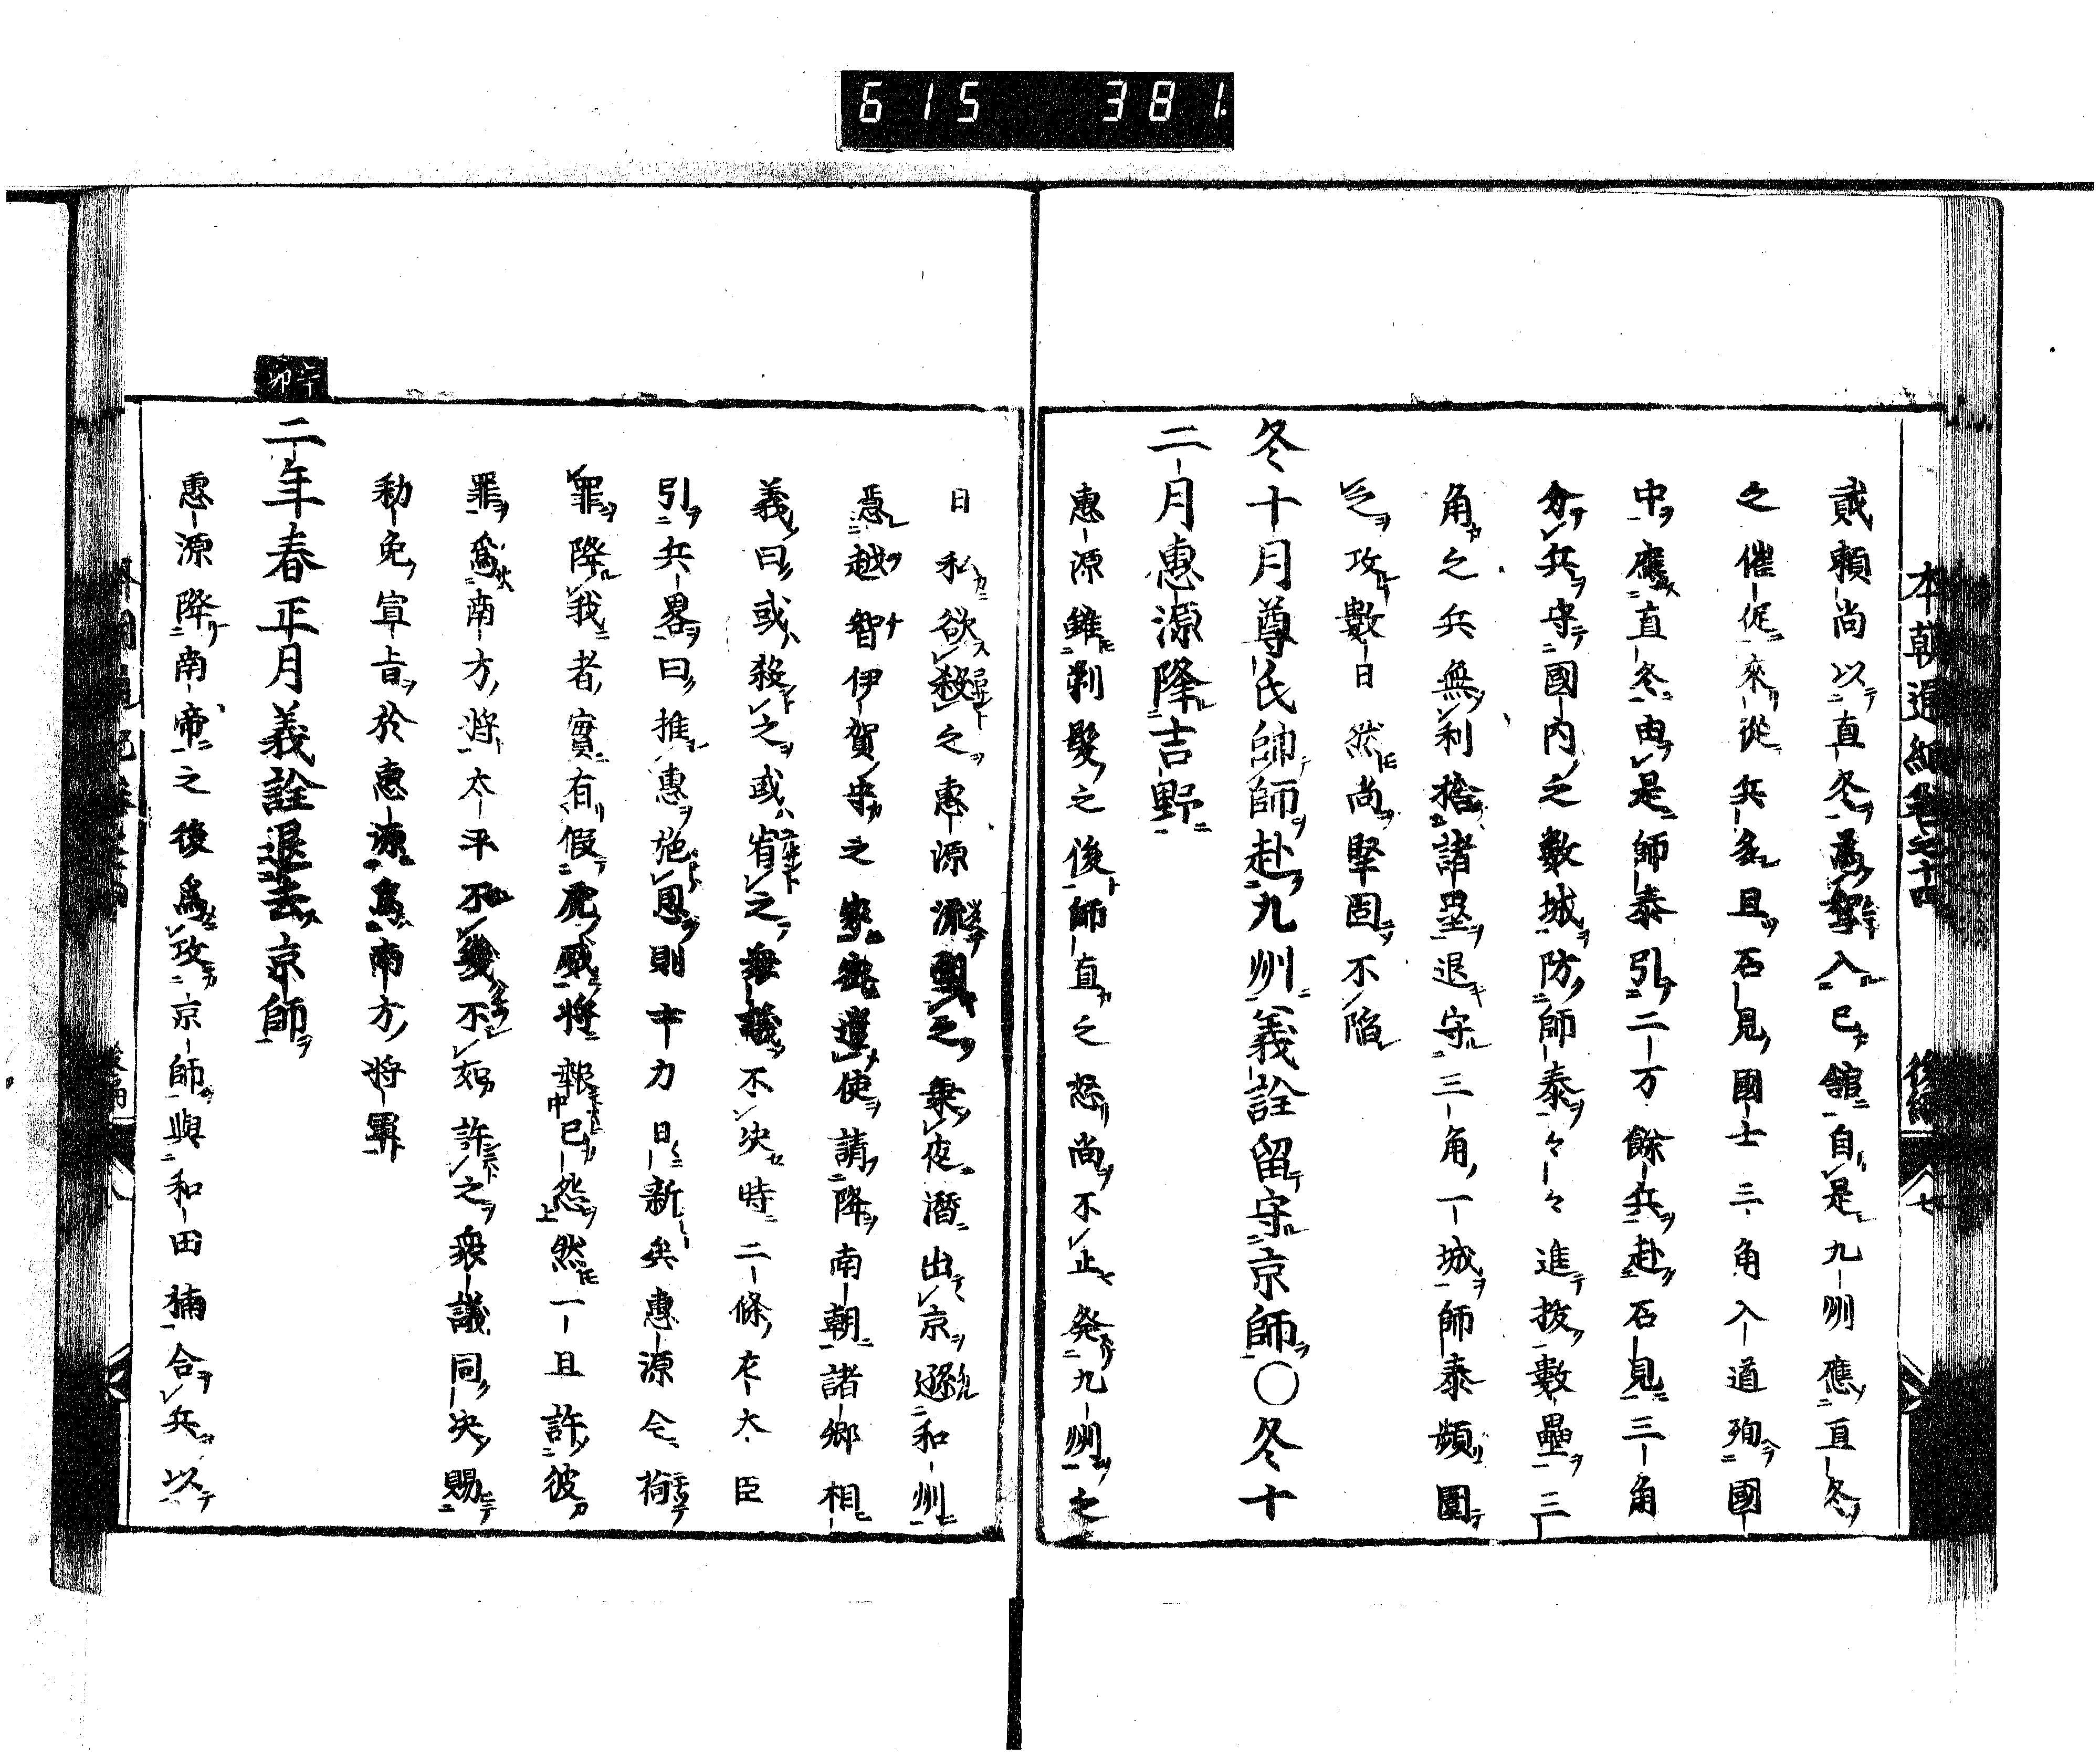 615 381
本朝通紀卷之十四 後編 七
貳賴尚以直冬為聟入已舘自是九州應直冬
之催促來從兵多且石見國士三角入道殉國
中應直冬由是師泰引二万餘兵赴石見三角
分兵守國內之數城防師泰々々進拔數壘三
角之兵無利捨諸壘退守三角一城師泰頻圍
之攻數日然尚堅固不陷
冬十月尊氏帥師赴九州義詮留守京師〇冬十
二月惠源降吉野
惠源雖剃髮之後師直之怒尚不止発九州之
日私欲殺之惠源乘夜潛出京遯和州
憑越智伊賀守之家遣使請降南朝諸鄉相
義曰或殺之或宥之衆議不决時二條左大臣
引兵畧曰推惠施恩則十力日新矣惠源今荷
罪降我者實有假虎威將報已怨然一且許彼
罪爲南方將太平不幾不如許之衆議同决賜
勅免宣旨於惠源爲南方將軍
丁卯
二年春正月義詮退去京師
惠源降南帝之後爲攻京師與和田楠合兵以